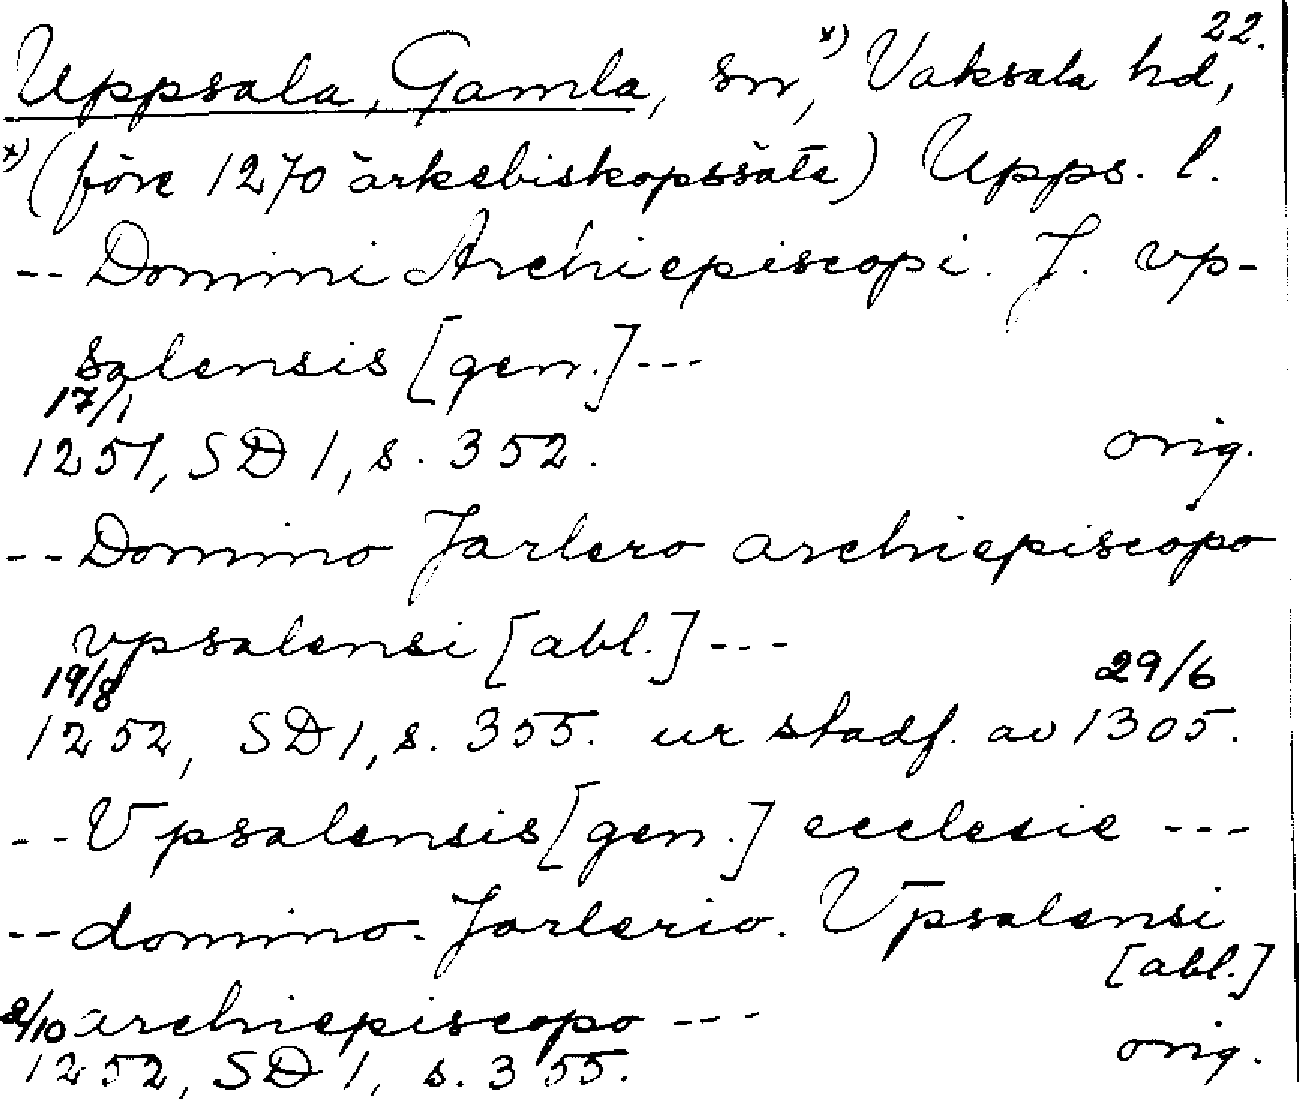 22.
Uppsala, Gamla, sn, x) Vaksala hd,
x) (före 1270 ärkebiskopssäte) Upps. l.
-- Domini Archiepiscopi. J. vp-
salensis [gen.] ---
17/1
1251, SD 1, s. 352. orig.
-- Domino Jarlero archiepiscopo
vpsalensi [abl.] ---
19/8 29/6
1252, SD 1, s. 355. ur stadf. av 1305.
-- Vpsalensis [gen.] ecclesie ---
-- domino. Jarlerio. Vpsalensi
[abl.]
2/10 archiepiscopo ---
1252, SD 1, s. 355. orig.